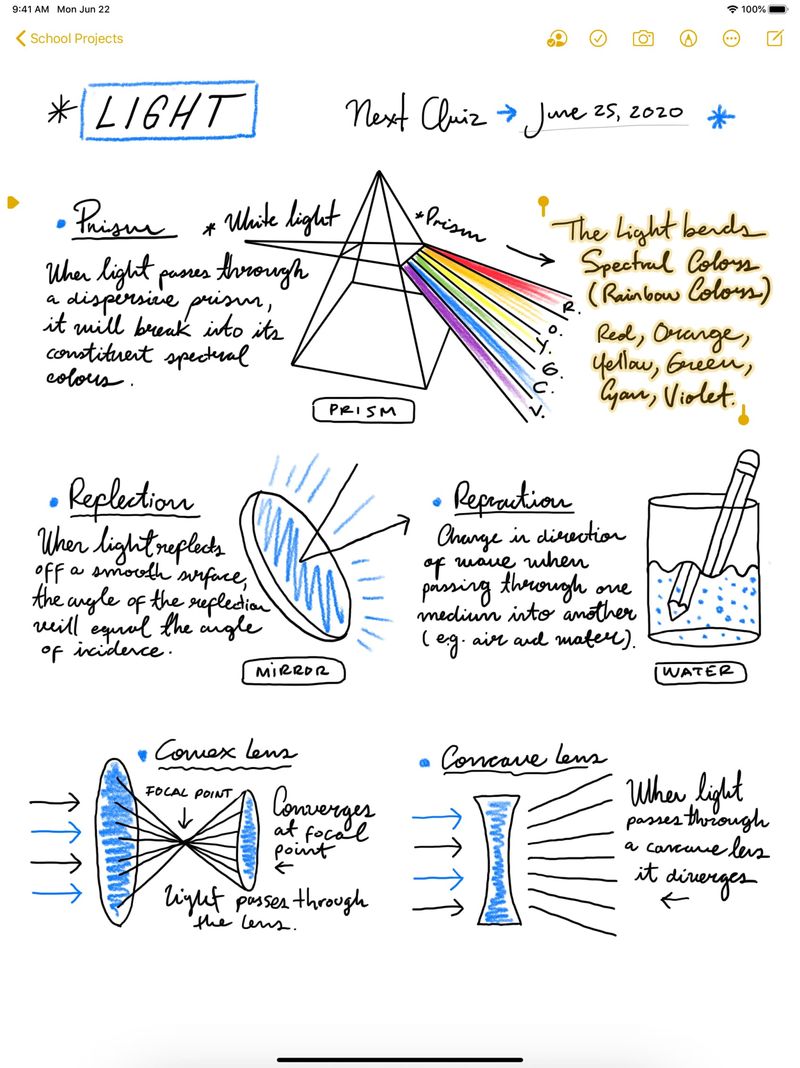 9:41 AM Mon Jun 22
100%
School Projects
* LIGHT
Next Quiz → June 25, 2020 *
• Prism
When light passes through
a dispersive prism,
it will break into its
constituent spectral
colours.
* White light
*Prism
R.
O.
Y.
G.
C.
V.
PRISM
The Light bends
Spectral Colors
(Rainbow Colors)
Red, Orange,
Yellow, Green,
Cyan, Violet.
• Reflection
When light reflects
off a smooth surface,
the angle of the reflection
will equal the angle
of incidence.
MIRROR
• Refraction
Change in direction
of wave when
passing through one
medium into another
(e.g. air and water).
WATER
• Convex Lens
FOCAL POINT
Converges
at focal
point
←
Light passes through
the lens.
• Concave Lens
When light
passes through
a concave lens
it diverges
←